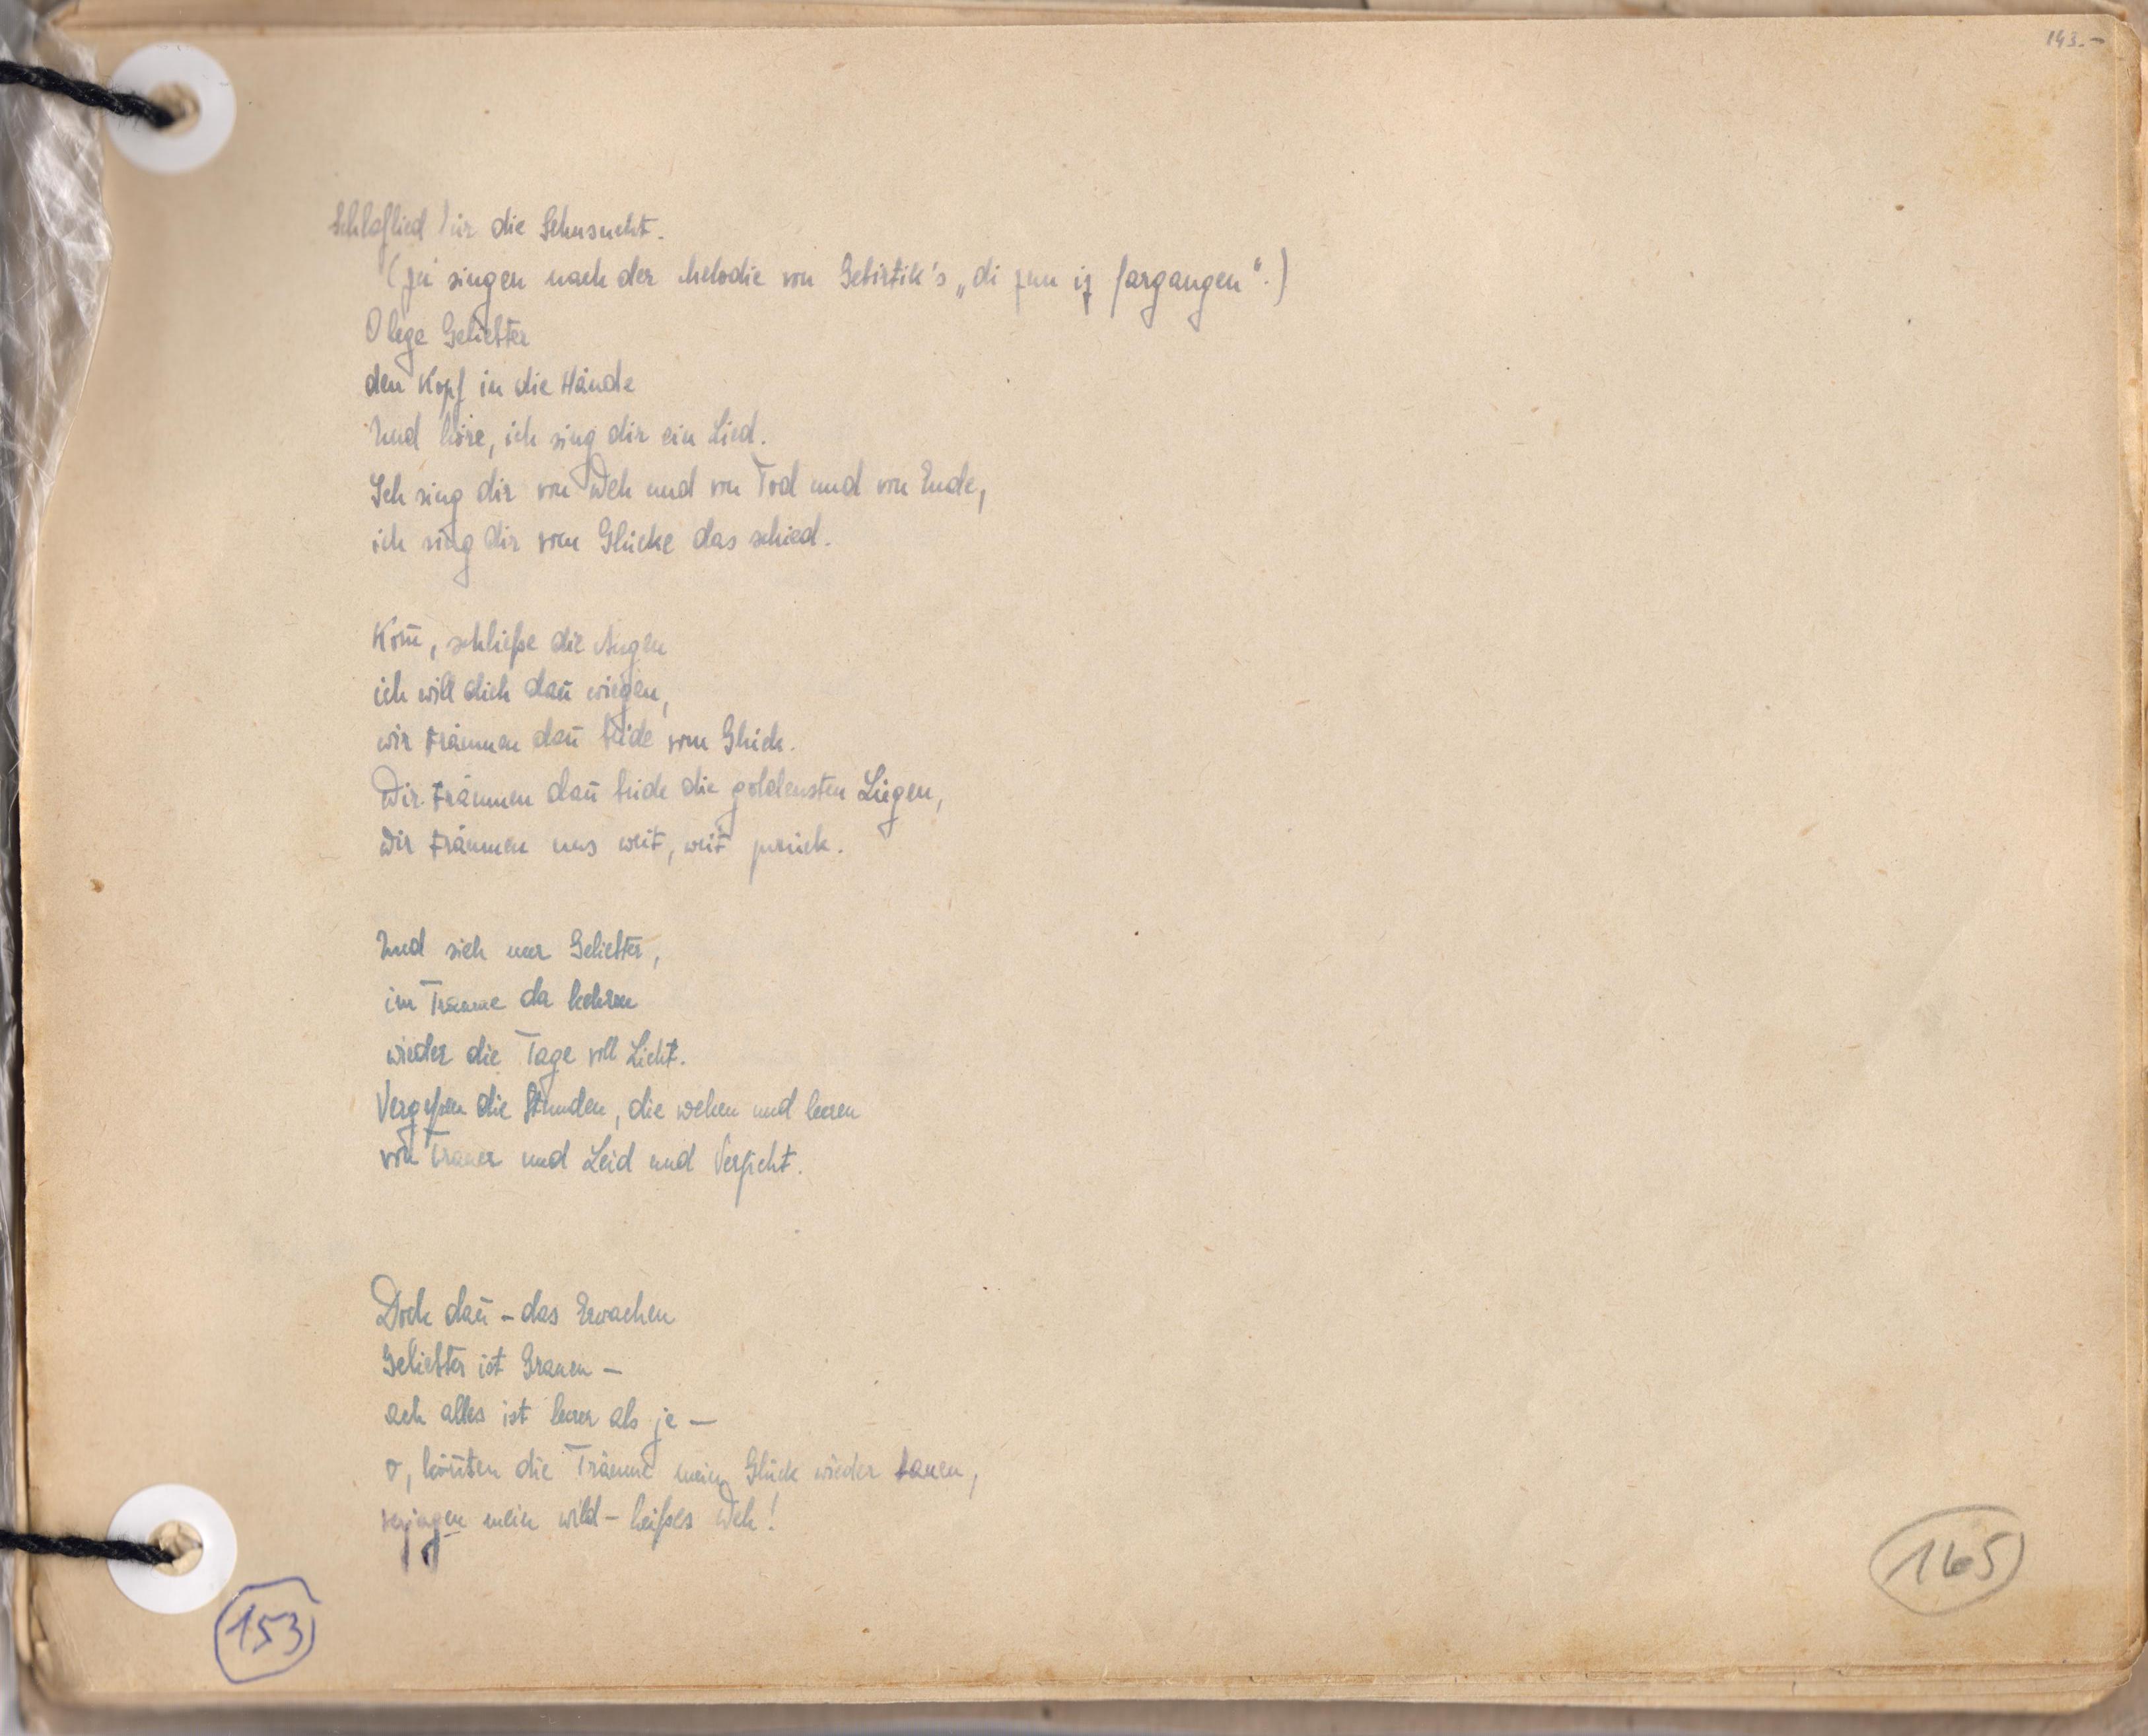 143.-
Schlaflied für die Sehnsucht.
(zu singen nach der Melodie von Gebirtik's „di zun iz fargangen“.)
O lege Geliebter
den Kopf in die Hände
Und höre, ich sing dir ein Lied.
Ich sing dir von Weh und von Tod und von Ende,
ich sing dir vom Glücke das schied.
Kom̄, schließe die Augen
ich will dich dan̄ wiegen,
wir träumen dan̄ beide vom Glück.
Wir träumen dan̄ beide die goldensten Lügen,
wir träumen uns weit, weit zurück.
Und sieh nur Geliebter,
im Traume da kehren
wieder die Tage voll Licht.
Vergeßen die Stunden, die wehen und leeren
von Trauer und Leid und Verzicht.
Doch dan̄ - das Erwachen
Geliebter ist Grauen -
ach alles ist leerer als je -
o, kön̄ten die Träume mein Glück wieder bauen,
verjagen mein wild-heißes Weh!
153
165